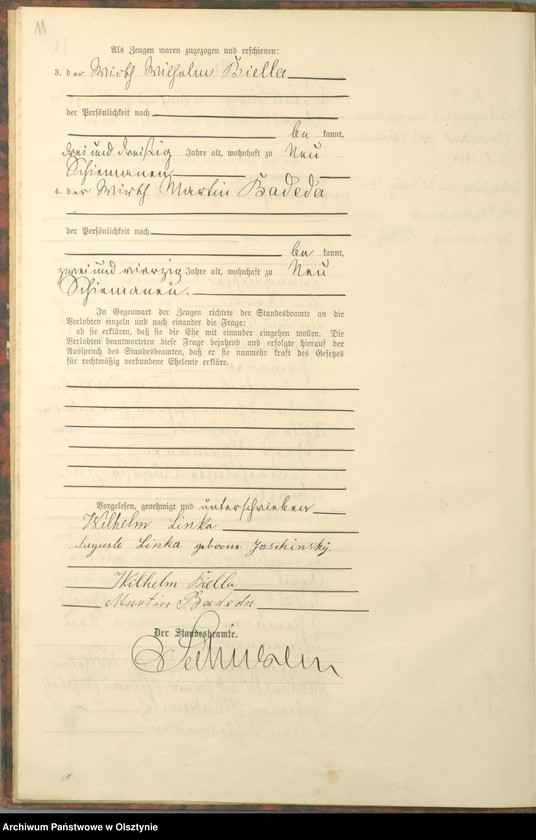 11
Als Zeugen waren zugezogen und erschienen:
3. der Wirth Wilhelm Biella
der Persönlichkeit nach
be kannt,
drei und dreißig Jahre alt, wohnhaft zu Neu
Schiemanen
4. der Wirth Martin Badeda
der Persönlichkeit nach
be kannt,
zwei und vierzig Jahre alt, wohnhaft zu Neu
Schiemanen.
In Gegenwart der Zeugen richtete der Standesbeamte an die
Verlobten einzeln und nach einander die Frage:
ob sie erklären, daß sie die Ehe mit einander eingehen wollen. Die
Verlobten beantworteten diese Frage bejahend und erfolgte hierauf der
Ausspruch des Standesbeamten, daß er sie nunmehr kraft des Gesetzes
für rechtmäßig verbundene Eheleute erkläre.
Vorgelesen, genehmigt und unterschrieben
Wilhelm Linka
Auguste Linka geborene Jaschinsky.
Wilhelm Biella
Martin Badeda
Der Standesbeamte.
Archiwum Państwowe w Olsztynie